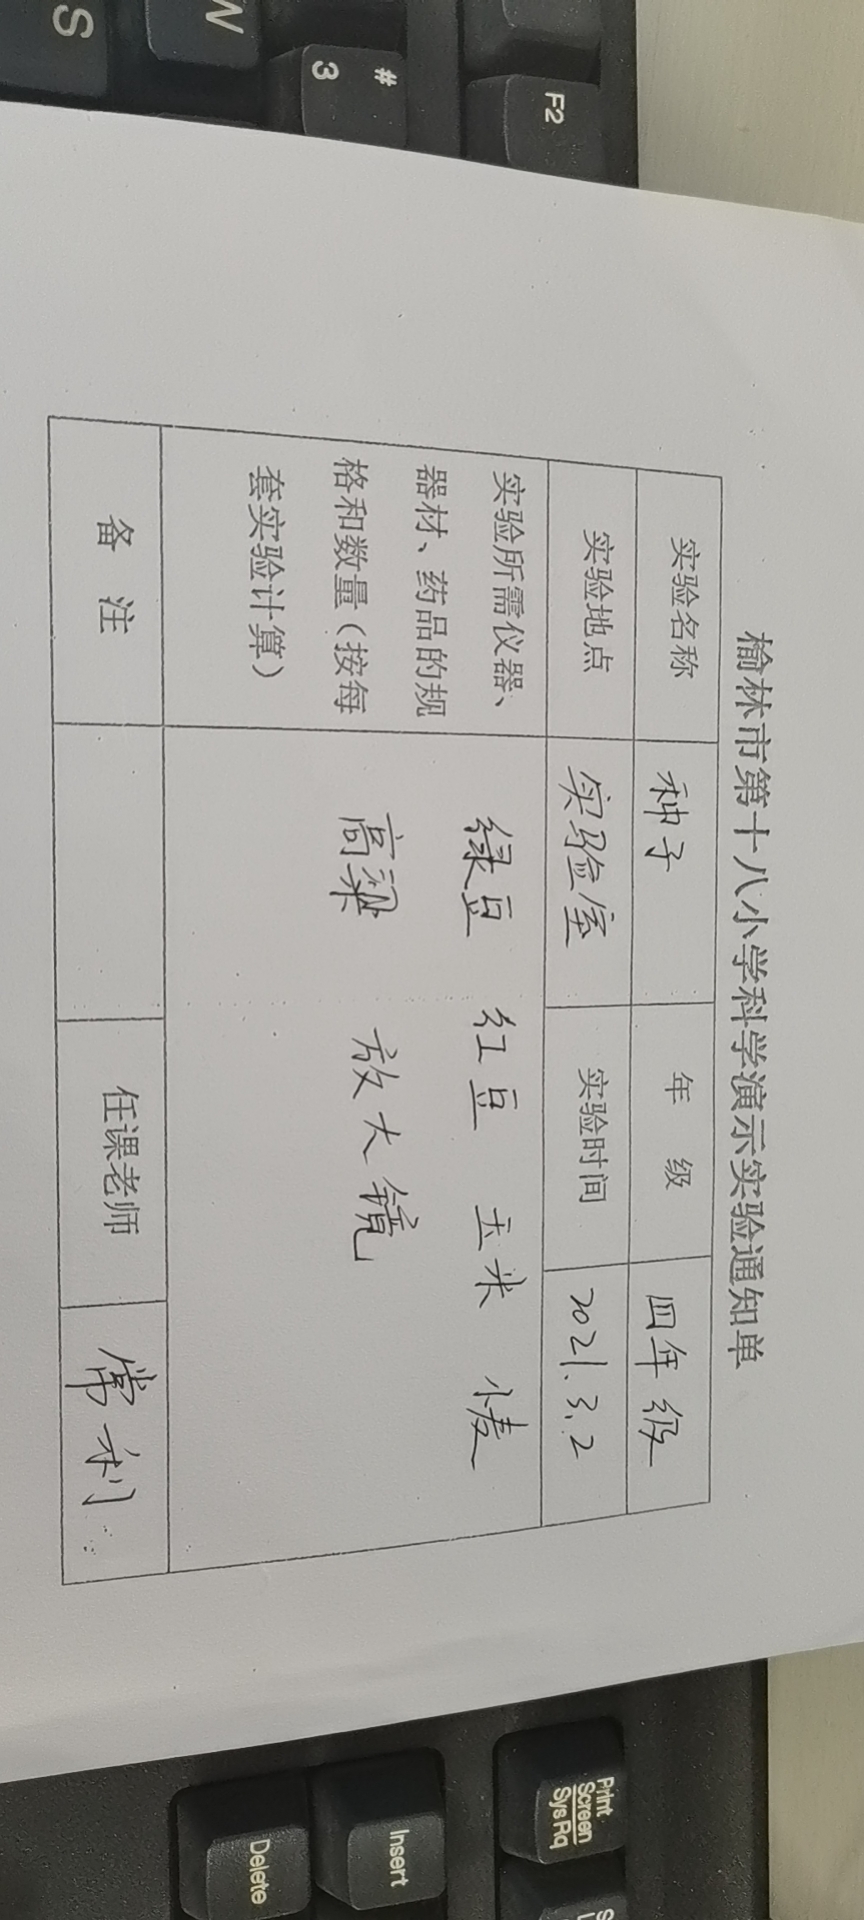 榆林市第十八小学科学演示实验通知单
实验名称 种子 年 级 四年级
实验地点 实验室 实验时间 2021.3.2
实验所需仪器、
器材、药品的规
格和数量（按每
套实验计算）
绿豆 红豆 玉米 小麦
高粱 放大镜
备 注 任课老师 常利
W
S
#
3
F2
Print
Screen
SysRq
Insert
Delete